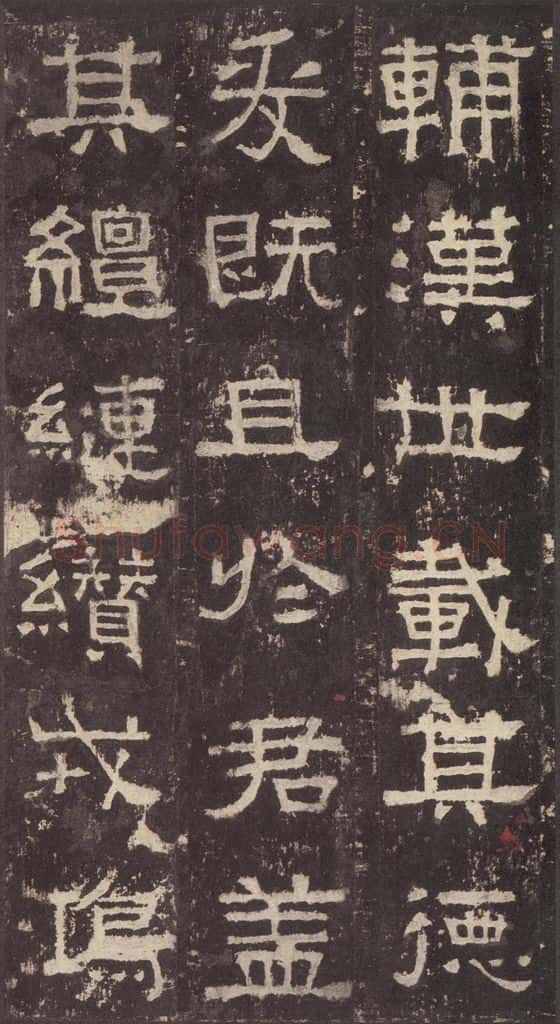 輔漢世載其德
爰既且於君盖
其繵縺纘戎鴻
Shufawang.CN